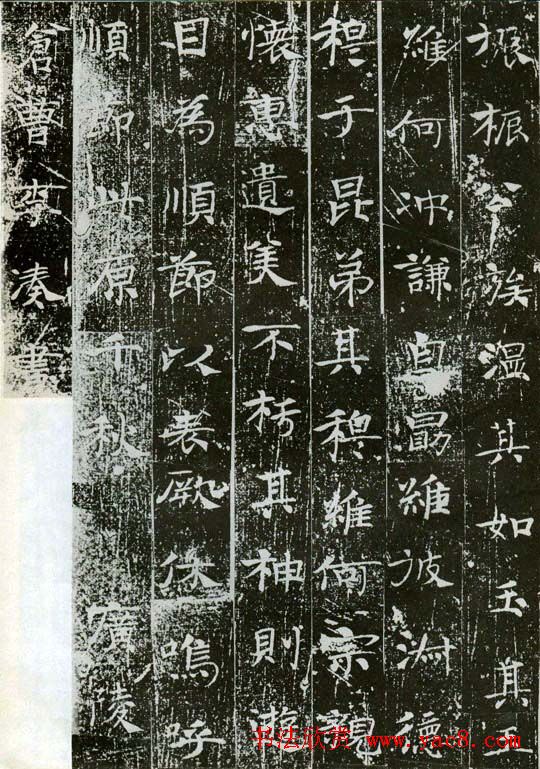 振振公族溫其如玉其玉
維何沖謙自勗雖彼淑德
穆于昆弟其穆維何宗親
懷惠遺美不朽其神則遊
目為順節以表厥休嗚呼
順節此原千秋　廣陵
倉曹李湊書
书法欣赏 www.yac8.com